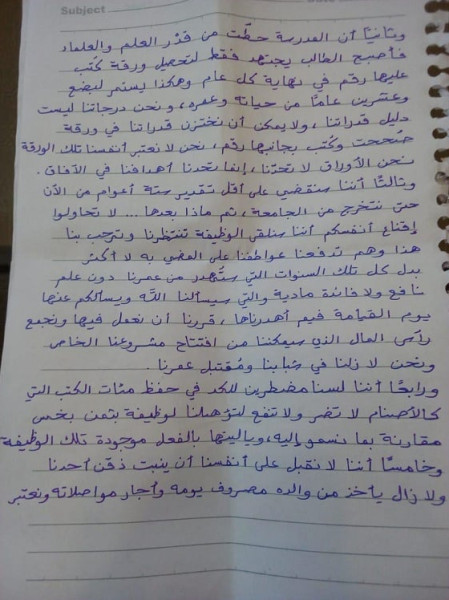 Subject
وثانيًا أن المدرسة حطّت من قدْر العلم والعلماء
فأصبح الطالب يجتهد فقط لتحصيل ورقة كُتب
عليها رقم في نهاية كل عام وهكذا يستمر لبضع
وعشرين عامًا من حياته وعمره، ونحن درجاتنا ليست
دليل قدراتنا، ولا يمكن أن نختزن قدراتنا في ورقة
صُححت وكُتب بجانبها رقم، نحن لا نعتبر أنفسنا تلك الورقة
نحن الأوراق لا تحدّنا، إنما تحدنا أهدافنا في الآفاق.
وثالثًا أننا سنقضي على أقل تقدير ستة أعوام من الآن
حتى نتخرج من الجامعة، ثم ماذا بعدها .... لا تحاولوا
إقناع أنفسكم أننا سنلقى الوظيفة تنتظرنا وترحب بنا
هذا وهم تدفعنا عواطفنا على المضي به لا أكثر
بدل كل تلك السنوات التي ستُهدر من عمرنا دون علم
نافع ولا فائدة مادية والتي سيسألنا اللّه ويسألكم عنها
يوم القيامة فيم أهدرناها، قررنا أن نعمل فيها ونجمع
رأس المال الذي سيمكننا من افتتاح مشروعنا الخاص
ونحن لا زلنا في شبابنا ومُقتبل عمرنا.
ورابعًا أننا لسنا مضطرين للكد في حفظ مئات الكتب التي
كالأصنام لا تضر ولا تنفع لتؤهلنا لوظيفة بثمن بخس
مقارنة بما نسمو إليه، وياليتها بالفعل موجودة تلك الوظيفة
وخامسًا أننا لا نقبل على أنفسنا أن ينبت ذقن أحدنا
ولا زال يأخذ من والده مصروف يومه وأجار مواصلاته ونعتبر